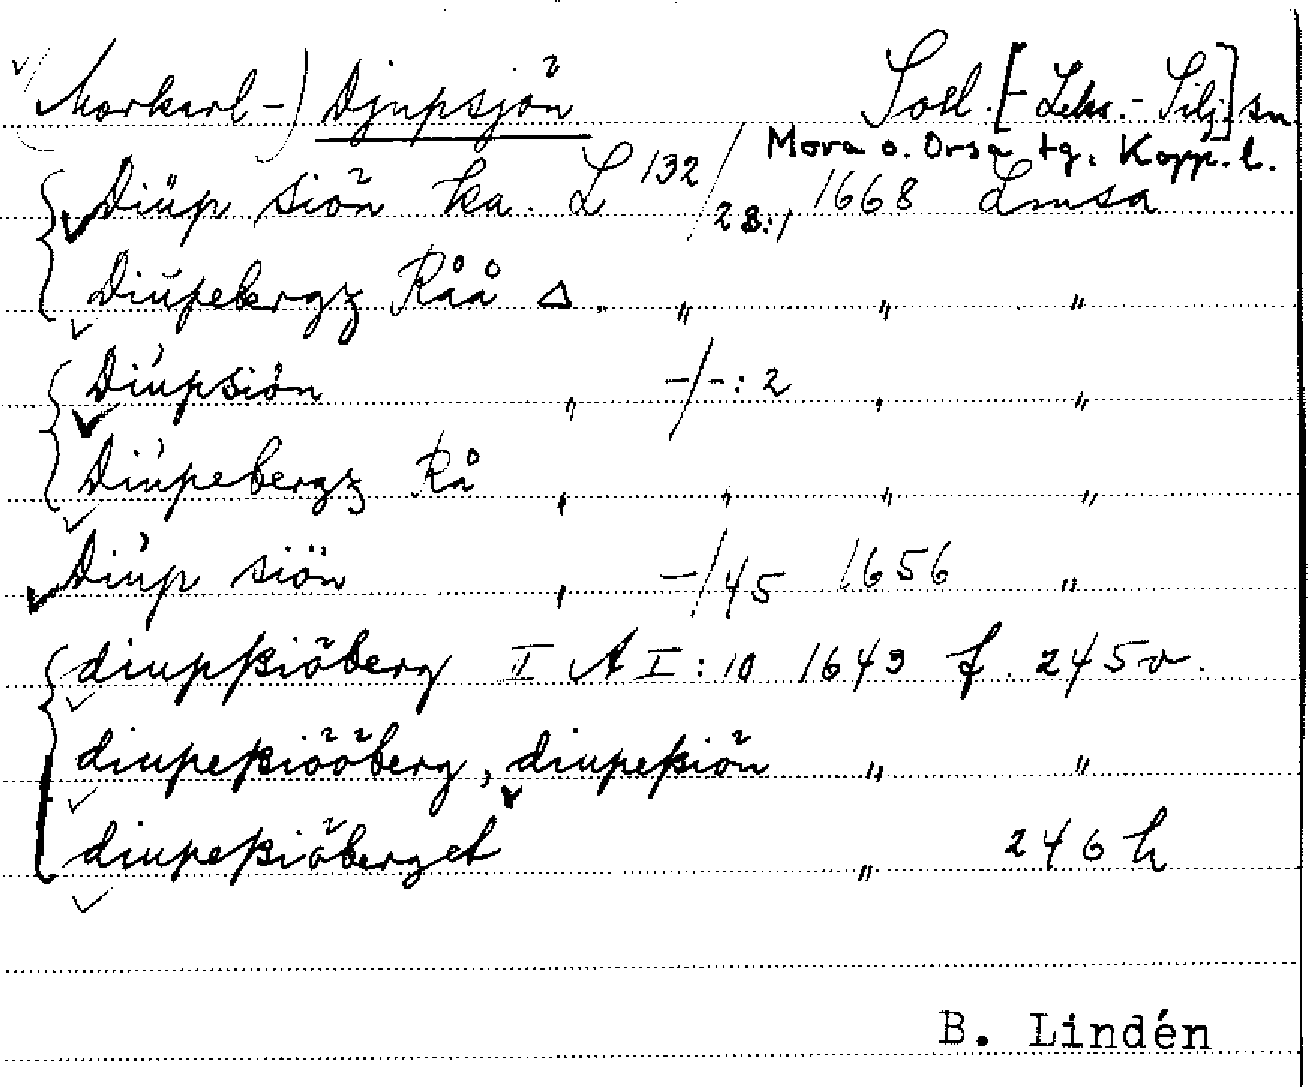 (Morkarl-) Djupsjön Soll. [- Leks.- Silj] sn
Mora o. Orsa tg. Kopp. l.
Diŭp siön ka. L 132/28:1 1668 Lmsa
Diŭpebergz Råå △ „ „ „
Diúpsiön „ -/-:2 „ „
Diúpebergz Rå „ „ „ „
Diúp siön „ -/45 1656 „
diupßiöberg I A I:10 1643 f. 245v.
diupeßiööberg, diupeßiön „ „
diupeßiöberget „ 246 h
B. Lindén